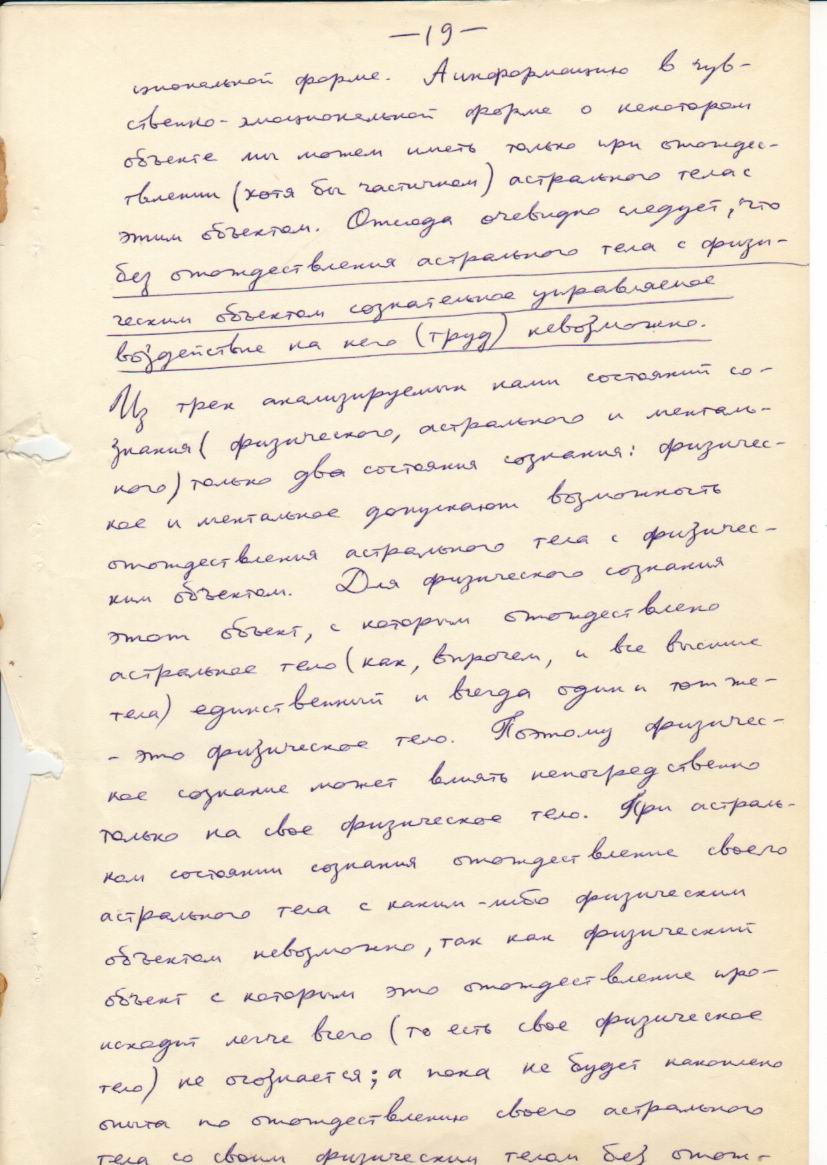 —19—
циональной форме. А информацию в чув-
ственно-эмоциональной форме о некотором
объекте мы можем иметь только при отождес-
твлении (хотя бы частичном) астрального тела с
этим объектом. Отсюда очевидно следует, что
без отождествления астрального тела с физи-
ческим объектом сознательное управляемое
воздействие на него (труд) невозможно.
Из трех анализируемых нами состояний со-
знания (физического, астрального и менталь-
ного) только два состояния сознания: физичес-
кое и ментальное допускают возможность
отождествления астрального тела с физичес-
ким объектом. Для физического сознания
этот объект, с которым отождествлено
астральное тело (как, впрочем, и все высшие
тела) единственный и всегда один и тот же-
- это физическое тело. Поэтому физичес-
кое сознание может влиять непосредственно
только на свое физическое тело. При астраль-
ном состоянии сознания отождествление своего
астрального тела с каким-либо физическим
объектом невозможно, так как физический
объект с которым это отождествление про-
исходит легче всего (то есть свое физическое
тело) не осознается; а пока не будет накоплено
опыта по отождествлению своего астрального
тела со своим физическим телом без отож-